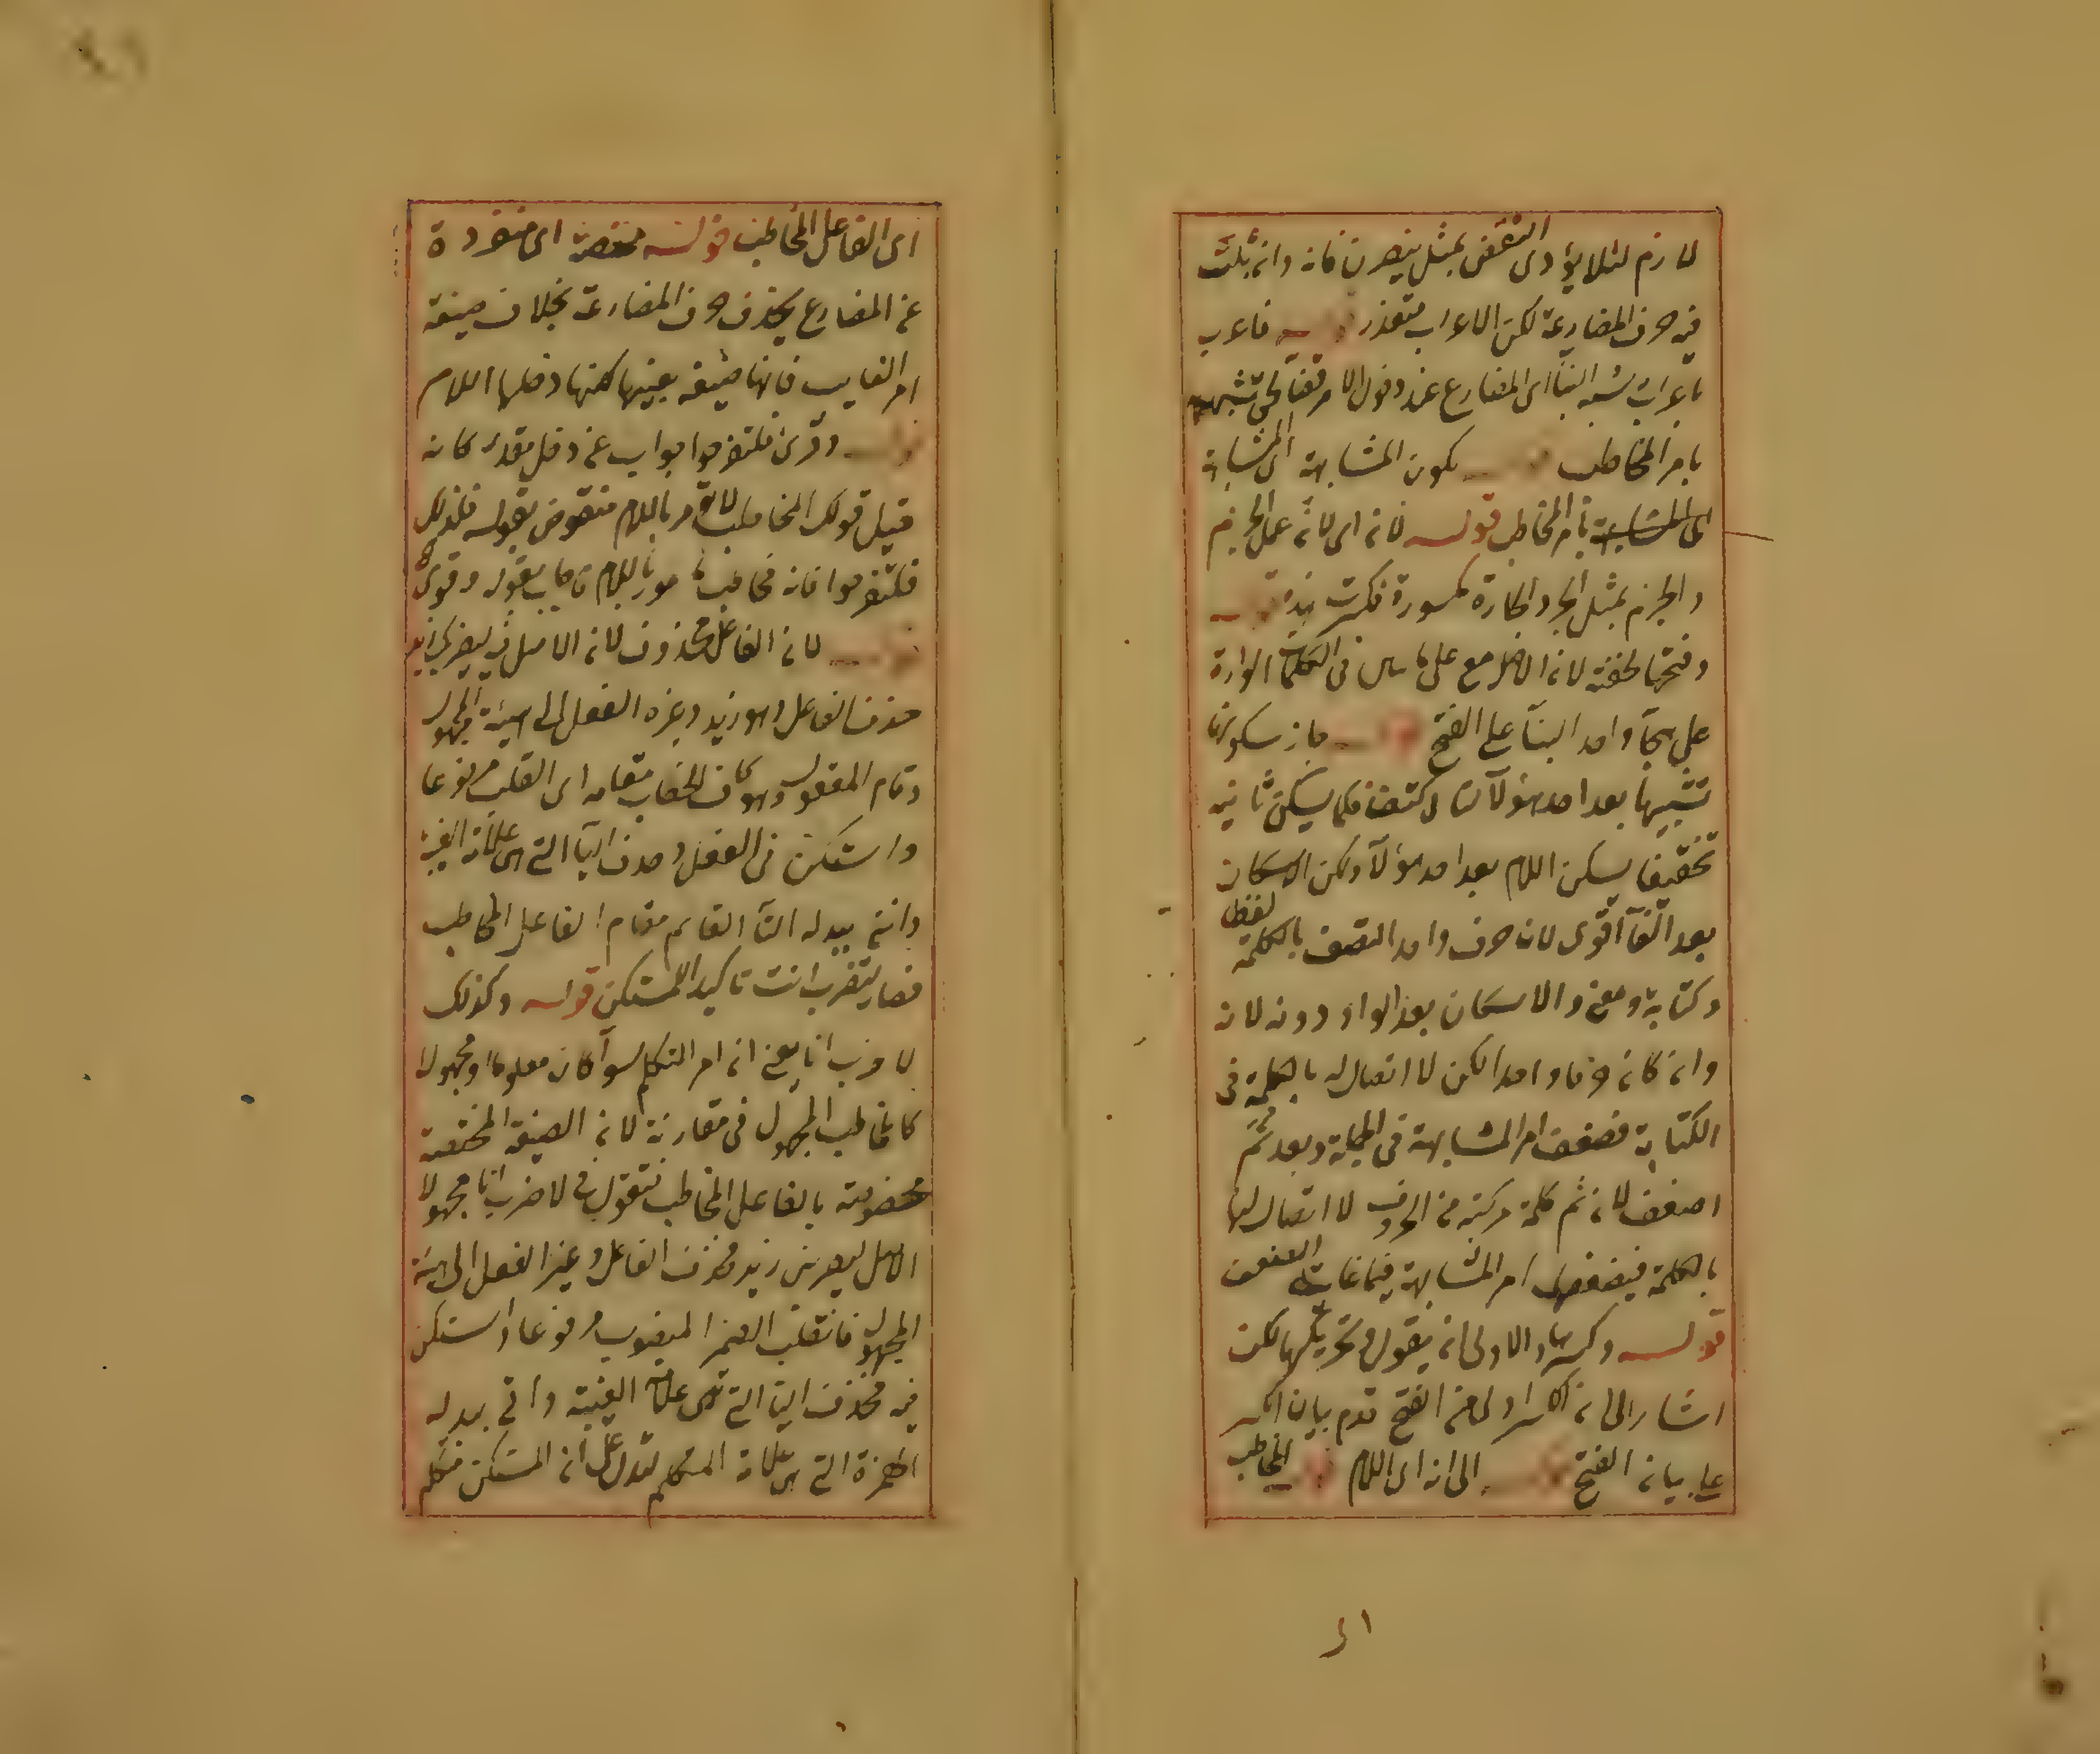 لازم لئلا يؤدى النقض بمثل ينصرن فانه وان ثبت
فيه حرف المضارعة لكن الاعراب متعذر قوله فاعرب
باعراب شبه البناء اى المضارع عند دخول الامر لتشبهه
بامر المخاطب قوله لكون المشابهة اى المشابهة
بامر المخاطب قوله لانه اى لانه عمل الجزم
والجزم بمثل الجر والجارة مكسورة فكسرت هذه قوله
وفتحها لخفته لانه الاصل مع على فى الكلمات الواردة
على هجاء واحد البناء على الفتح قوله جاز سكونها
تشبيها بعد احد هؤلاء كتف فكما يسكن ثانيه
تخفيفا يسكن اللام بعد احد هؤلاء ولكن الاسكان
بعد الفاء اقوى لانه حرف واحد التصق بالكلمة لفظا
وكتابة ومعنى والاسكان بعد الواو دونه لانه
وان كان حرفا واحدا لكن لا اتصال له بالكلمة فى
الكتابة فضعف امر المشابهة فى الجملة وبعد ثم
اضعف لان ثم كلمة مركبة من الحروف لا اتصال لها
بالكلمة فيضعف امر المشابهة فيها غاية الضعف
قوله وكسرها والاولى ان يقول وتحريكها لكن
اشار الى ان الكسر اولى من الفتح قدم بيان الكسر
على بيان الفتح قوله الى انه اى اللام قوله المخاطب
اى الفاعل المخاطب قوله مختصة اى منفردة
عن المضارع بحذف حرف المضارعة بخلاف صيغة
امر الغايب فانها صيغة بعينها لكنها دخلها اللام
قوله وقرئ فلتفرحوا جواب عن دخل مقدر كانه
قيل قولك المخاطب لا يؤمر باللام منقوض بقوله فلذلك
فلتفرحوا فانه مخاطب مأمور باللام فاجاب بقوله وقرئ
قوله لان الفاعل محذوف لان الاصل فيه ليضربك زيد
حذف الفاعل وهو زيد وغيره الفعل الى هيئة المجهول
وقام المفعول وهو كاف الخطاب مقامه اى انقلب مرفوعا
واستكن فى الفعل وحذف الياء التى هى علامة الغيبة
واتى بدله التاء القائم مقام الفاعل المخاطب
فصار لتضرب انت تاكيد المستكن قوله وكذلك
لاضرب انا يعنى ان امر المتكلم سواء كان معلوما او مجهولا
كالمخاطب المجهول فى مقارنة لان الصيغة المختصة
مخصوصة بالفاعل المخاطب فتقول فى لاضرب انا مجهولا
الاصل ليضربنى زيد فحذف الفاعل وغير الفعل الى هيئة
المجهول فانقلب الضمير المنصوب مرفوعا واستكن
فيه فحذف الياء التى هى علامة الغيبة واتى بدله
الهمزة التى هى علامة المتكلم لتدل على ان المستكن متكلم